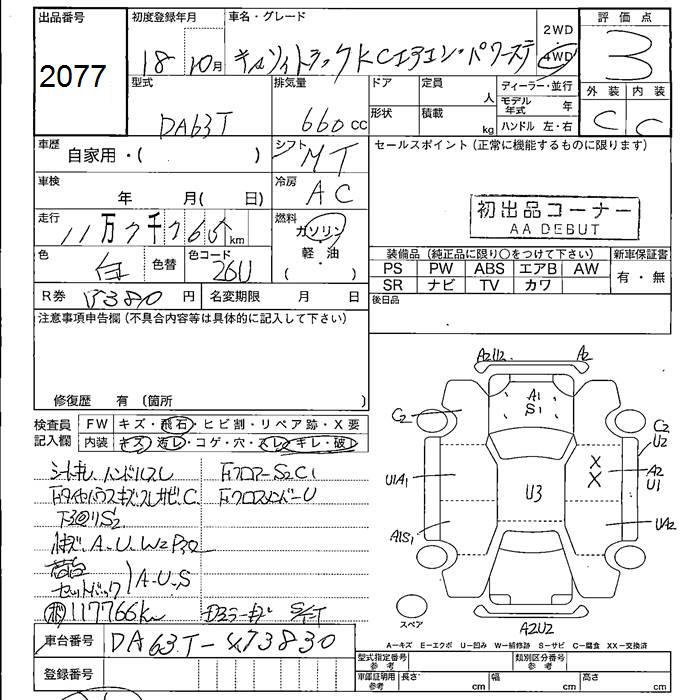 出品番号
2077
初度登録年月
18 - 10月
車名・グレード
2WD
4WD
評価点
3
外装 内装
C C
型式
DA63T
排気量
660 cc
ドア
定員
人
形状
積載
kg
ディーラー・並行
モデル年式 年
ハンドル 左・右
車歴
自家用・( )
シフト
MT
車検
年 月( 日)
冷房
AC
走行
11万7千766 km
燃料
ガソリン
軽・油
( )
色
白
色替
色コード
26U
R券
¥7380 円
名変期限 月 日
セールスポイント(正常に機能するものに限ります)
初出品コーナー
AA DEBUT
装備品(純正品に限り〇をつけて下さい)
新車保証書
PS PW ABS エアB AW
SR ナビ TV カワ
有・無
後日品
注意事項申告欄(不具合内容等は具体的に記入して下さい)
修復歴 有(箇所 )
検査員記入欄
FW キズ・飛石・ヒビ割・リペア跡・X要
内装 キズ・汚レ・コゲ・穴・スレ・キレ・破レ
シートキレ、ハンドルスレ
FフロアーS2C1
FクロスメンバーU
下回りS2
A、U、W2
荷台
セットバック A、U、S
117766km
車台番号
DA63T-473830
登録番号
A2U2
A2
A1
S1
C2
C2
U2
U1A1
U3
X
X
A2
U1
A1S1
UA2
スペア
A2U2
A-キズ E-エクボ U-凹み W-補修跡 S-サビ C-腐食 XX-交換済
型式指定番号 参考
類別区分番号 参考
車庫証明用 参考
長さ cm
幅 cm
高さ cm